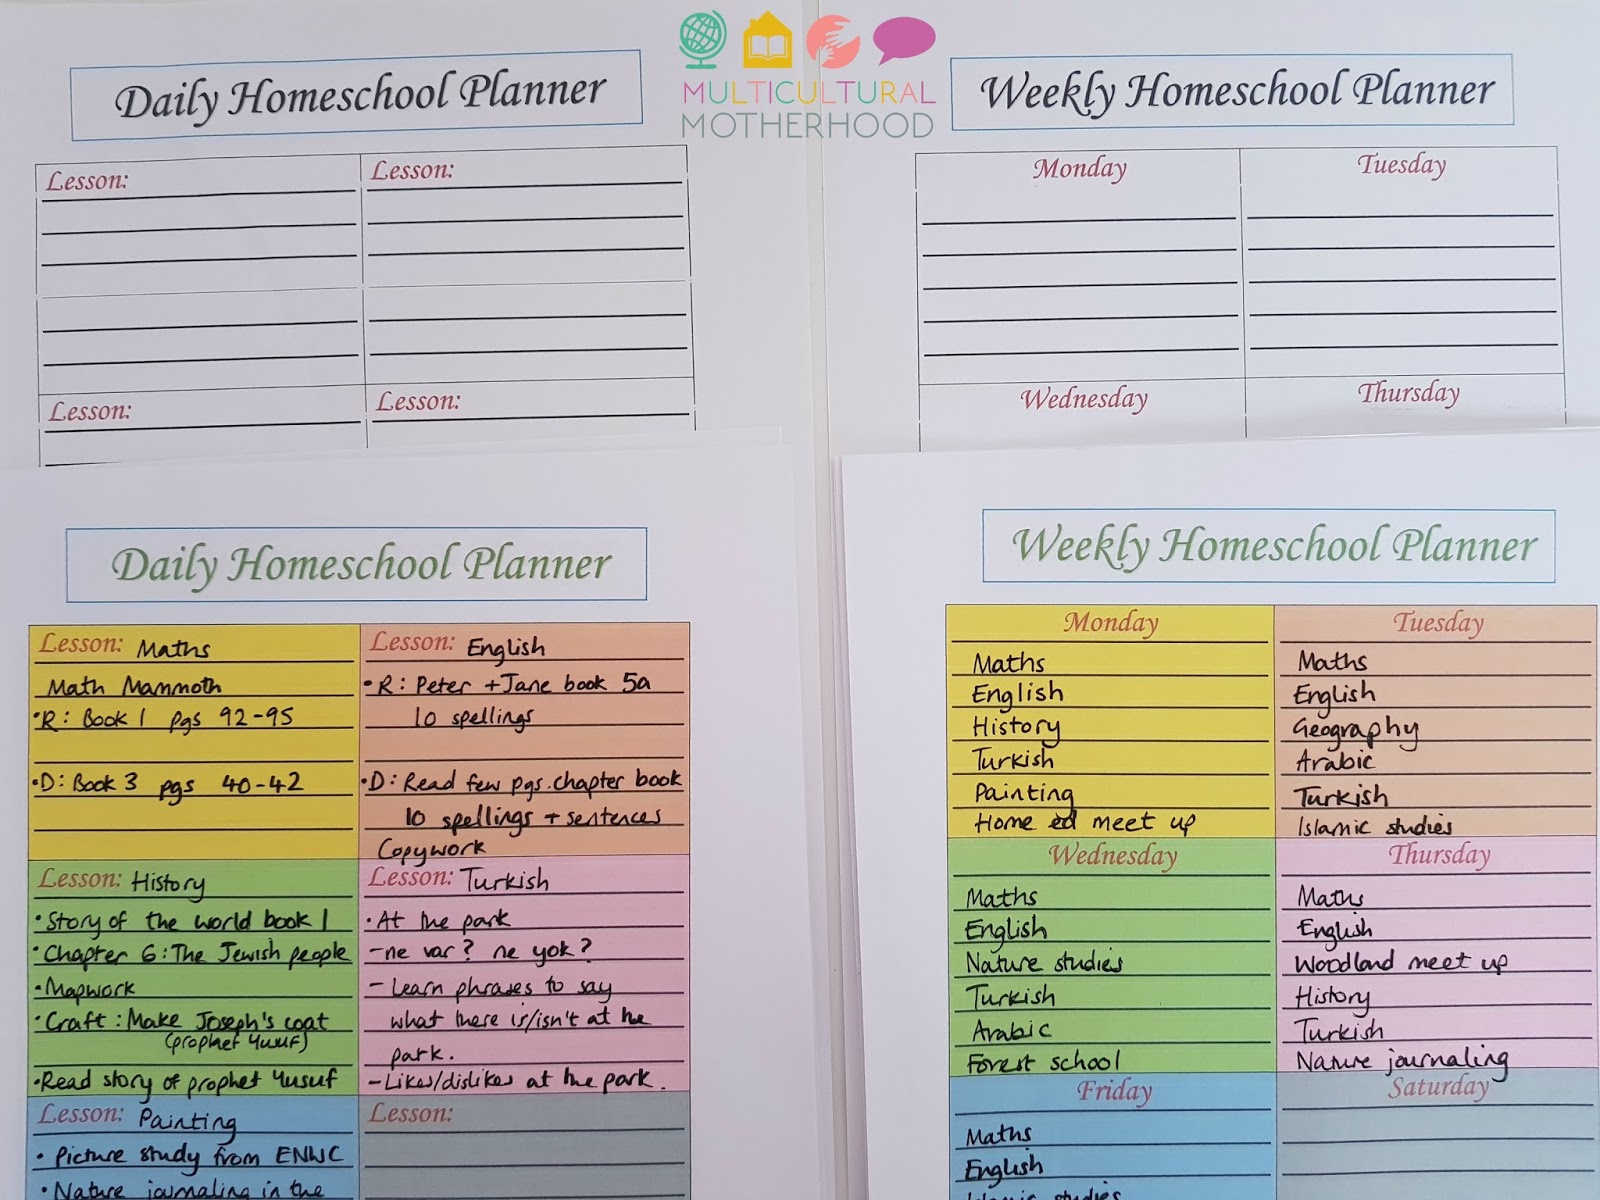 MULTICULTURAL
MOTHERHOOD
Daily Homeschool Planner
Lesson:
Lesson:
Lesson:
Lesson:
Weekly Homeschool Planner
Monday
Tuesday
Wednesday
Thursday
Daily Homeschool Planner
Lesson: Maths
Math Mammoth
•R: Book 1 pgs 92-95
•D: Book 3 pgs 40-42
Lesson: English
•R: Peter + Jane book 5a
10 spellings
•D: Read few pgs. chapter book
10 spellings + sentences
Copywork
Lesson: History
•Story of the world book 1
•Chapter 6: The Jewish people
•Mapwork
•Craft: Make Joseph's coat
(prophet Yusuf)
•Read story of prophet Yusuf
Lesson: Turkish
•At the park
-ne var? ne yok?
- Learn phrases to say
what there is/isn't at the
park.
-Likes/dislikes at the park.
Lesson: Painting
• Picture study from ENWC
• Nature journaling in the
Lesson:
Weekly Homeschool Planner
Monday
Maths
English
History
Turkish
Painting
Home ed meet up
Tuesday
Maths
English
Geography
Arabic
Turkish
Islamic studies
Wednesday
Maths
English
Nature studies
Turkish
Arabic
Forest school
Thursday
Maths
English
Woodland meet up
History
Turkish
Nature journaling
Friday
Maths
English
Islamic studies
Saturday